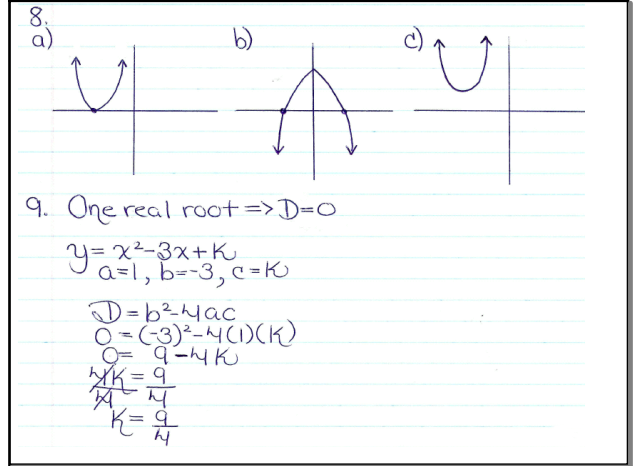 8.
a) b) c)
9. One real root => D=0
y= x²-3x+K
a=1, b=-3, c=K
D=b²-4ac
0=(-3)²-4(1)(K)
0= 9-4K
4K = 9
4 4
K= 9
4